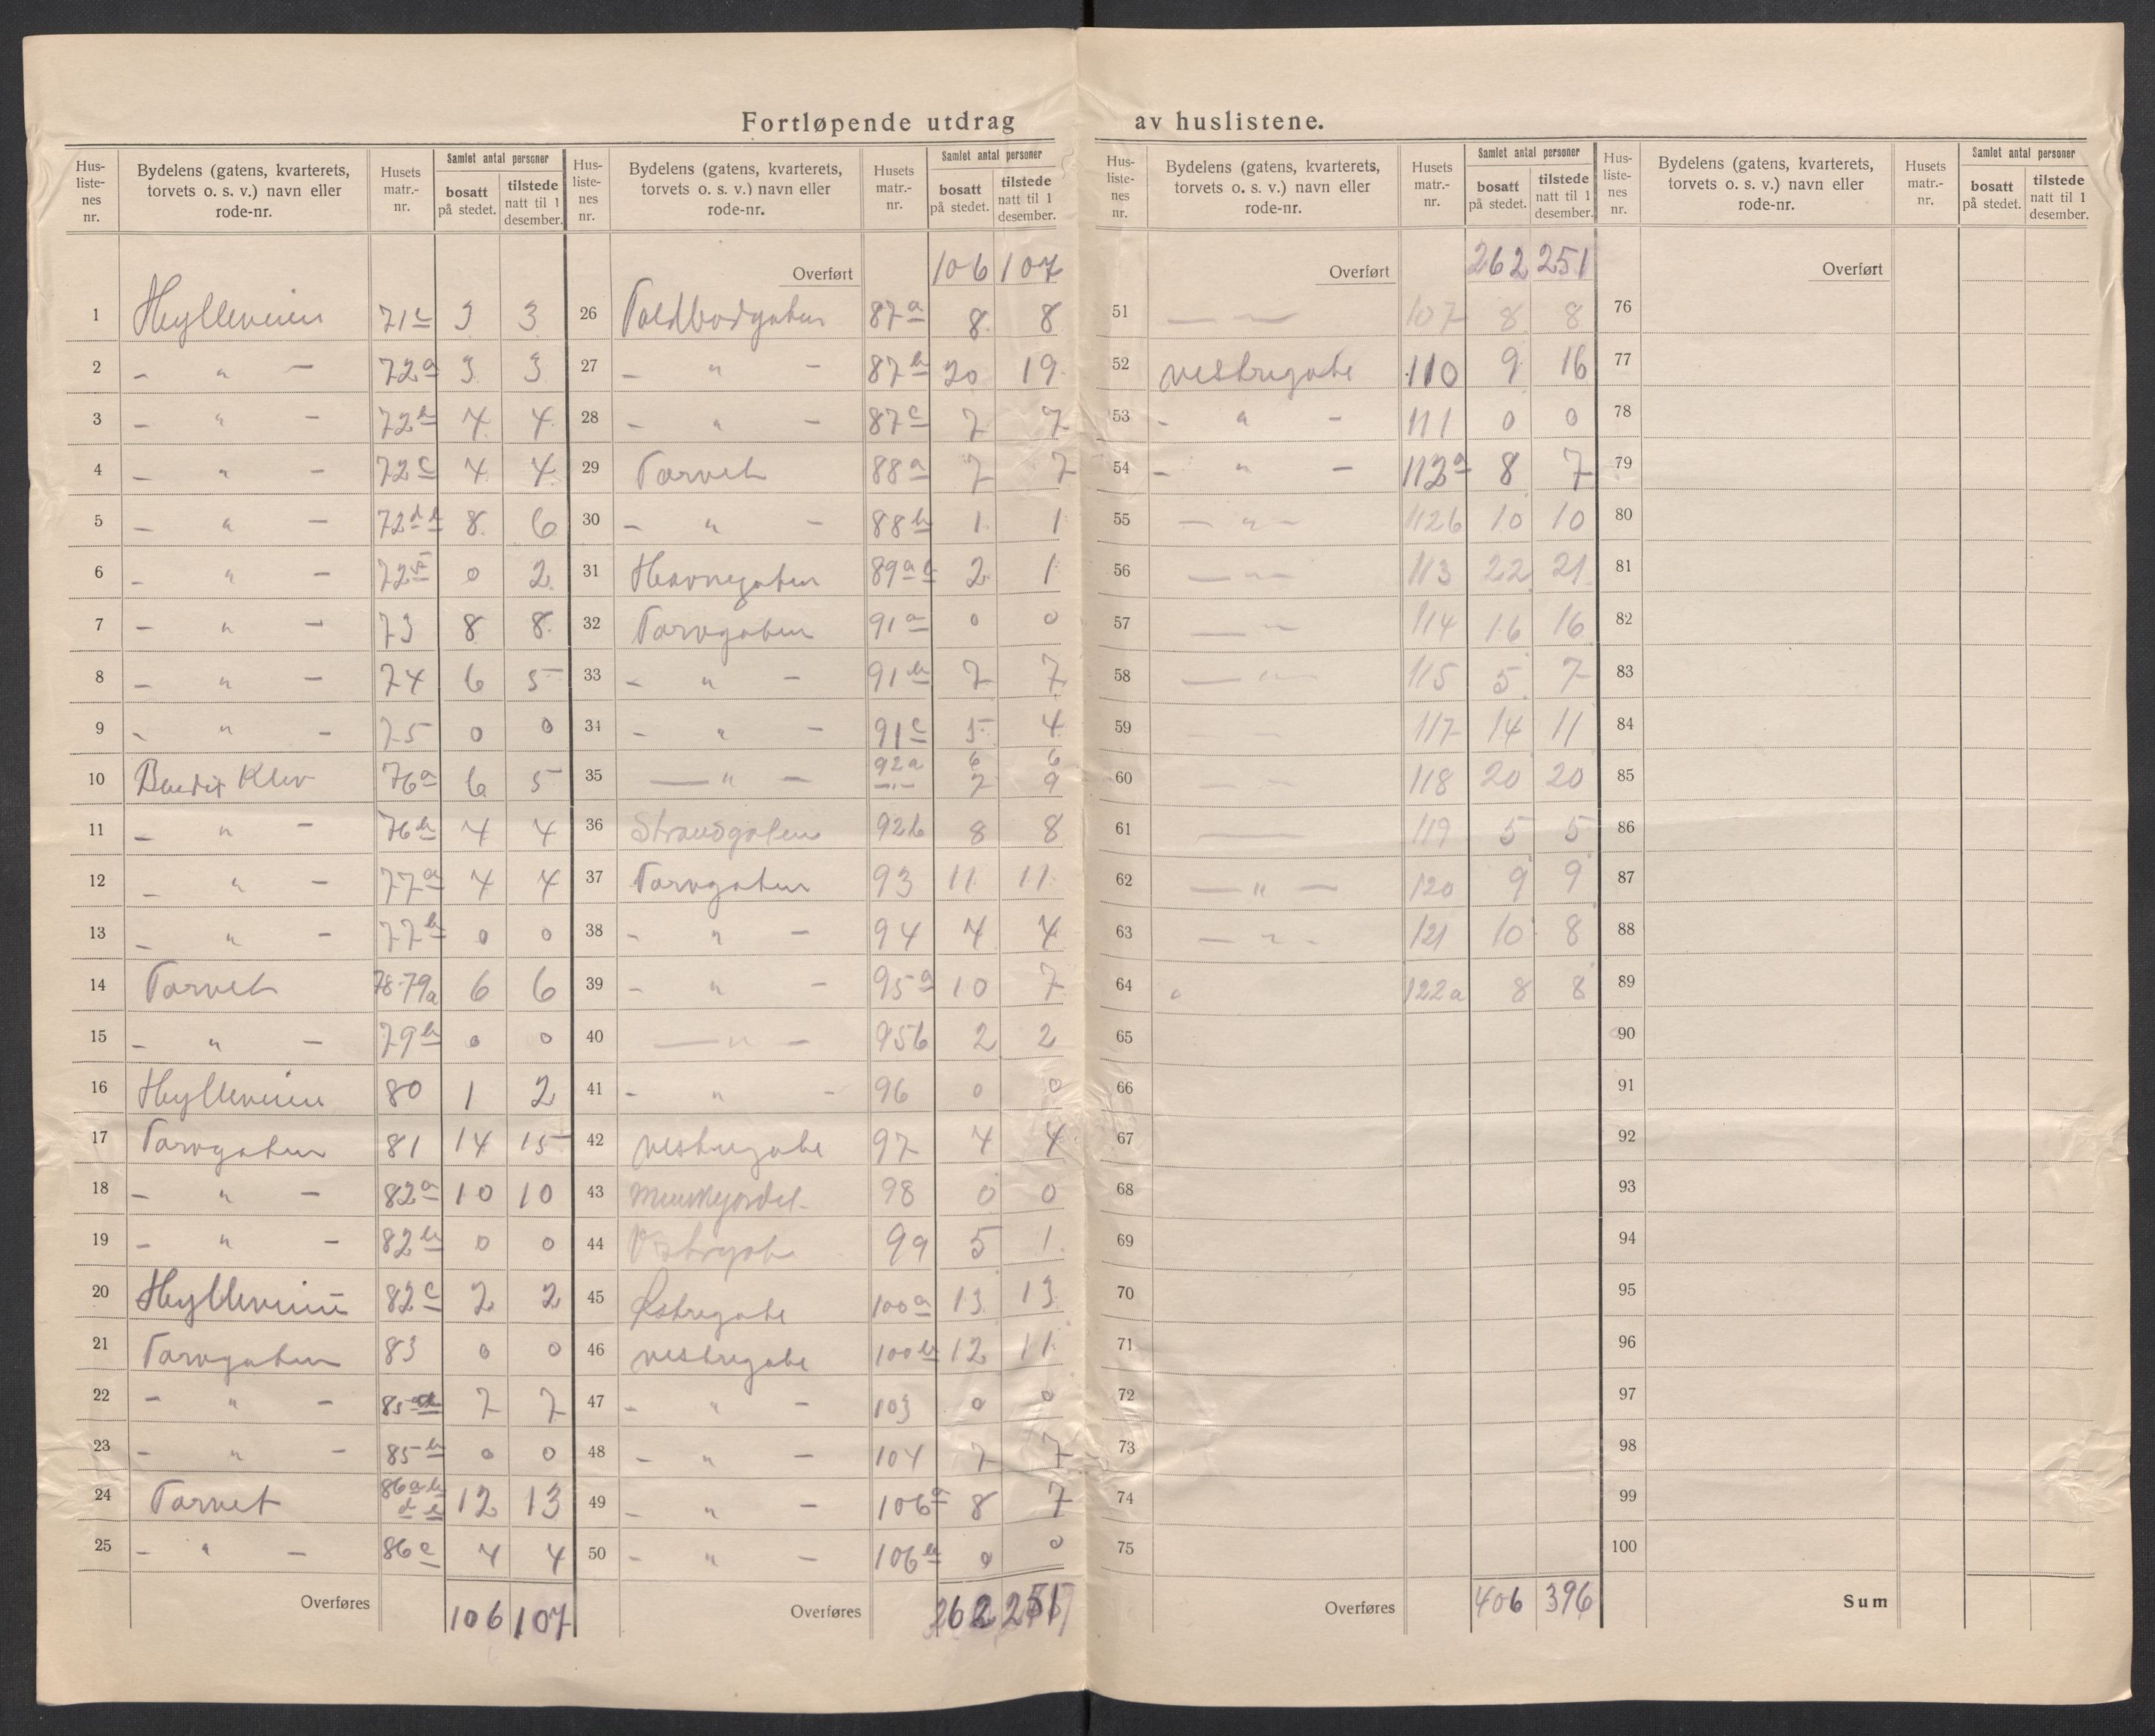 Fortløpende utdrag av huslistene.
Hus-liste-nes nr. | Bydelens (gatens, kvarterets, torvets o. s. v.) navn eller rode-nr. | Husets matr.-nr. | Samlet antal personer bosatt på stedet. | tilstede natt til 1 desember.
1 Hylleveien 71c 3 3
2 - " - 72a 3 3
3 - " - 72b 4 4
4 - " - 72c 4 4
5 - " - 72d 8 6
6 - " - 72 0 2
7 - " - 73 8 8
8 - " - 74 6 5
9 - " - 75 0 0
10 Klev 76a 6 5
11 - " - 76b 4 4
12 - " - 77a 4 4
13 - " - 77b 0 0
14 Torvet 78-79a 6 6
15 - " - 79b 0 0
16 Hylleveien 80 1 2
17 Torvgaten 81 14 15
18 - " - 82a 10 10
19 - " - 82b 0 0
20 Hylleveien 82c 2 2
21 Torvgaten 83 0 0
22 - " - 85 7 7
23 - " - 85b 0 0
24 Torvet 86a b d e 12 13
25 - " - 86c 4 4
Overføres 106 107
Hus-liste-nes nr. | Bydelens (gatens, kvarterets, torvets o. s. v.) navn eller rode-nr. | Husets matr.-nr. | Samlet antal personer bosatt på stedet. | tilstede natt til 1 desember.
Overført 106 107
26 Toldbodgaten 87a 8 8
27 - " - 87b 20 19
28 - " - 87c 7 7
29 Torvet 88a 7 7
30 - " - 88b 1 1
31 Havnegaten 89a 2 1
32 Torvgaten 91a 0 0
33 - " - 91b 7 7
34 - " - 91c 5 4
35 - " - 92a 6 6
-"- 7 9
36 Strandgaten 92b 8 8
37 Torvgaten 93 11 11
38 - " - 94 4 4
39 - " - 95a 10 7
40 - " - 95b 2 2
41 - " - 96 0 0
42 Vestregate 97 4 4
43 98 0 0
44 Vestregate 99 5 1
45 Østregate 100a 13 13
46 Vestregate 100b 12 11
47 - " - 103 0 0
48 - " - 104 7 7
49 - " - 106a 8 7
50 - " - 106b 0 0
Overføres 262 251
Hus-liste-nes nr. | Bydelens (gatens, kvarterets, torvets o. s. v.) navn eller rode-nr. | Husets matr.-nr. | Samlet antal personer bosatt på stedet. | tilstede natt til 1 desember.
Overført 262 251
51 - - 107 8 8
52 Vestregate 110 9 16
53 - " - 111 0 0
54 - " - 112a 8 7
55 - " - 112b 10 10
56 - " - 113 22 21
57 - " 114 16 16
58 - " - 115 5 7
59 - - 117 14 11
60 - - 118 20 20
61 - 119 5 5
62 - " - 120 9 9
63 - " - 121 10 8
64 " 122a 8 8
65
66
67
68
69
70
71
72
73
74
75
Overføres 406 396
Hus-liste-nes nr. | Bydelens (gatens, kvarterets, torvets o. s. v.) navn eller rode-nr. | Husets matr.-nr. | Samlet antal personer bosatt på stedet. | tilstede natt til 1 desember.
Overført
76
77
78
79
80
81
82
83
84
85
86
87
88
89
90
91
92
93
94
95
96
97
98
99
100
Sum